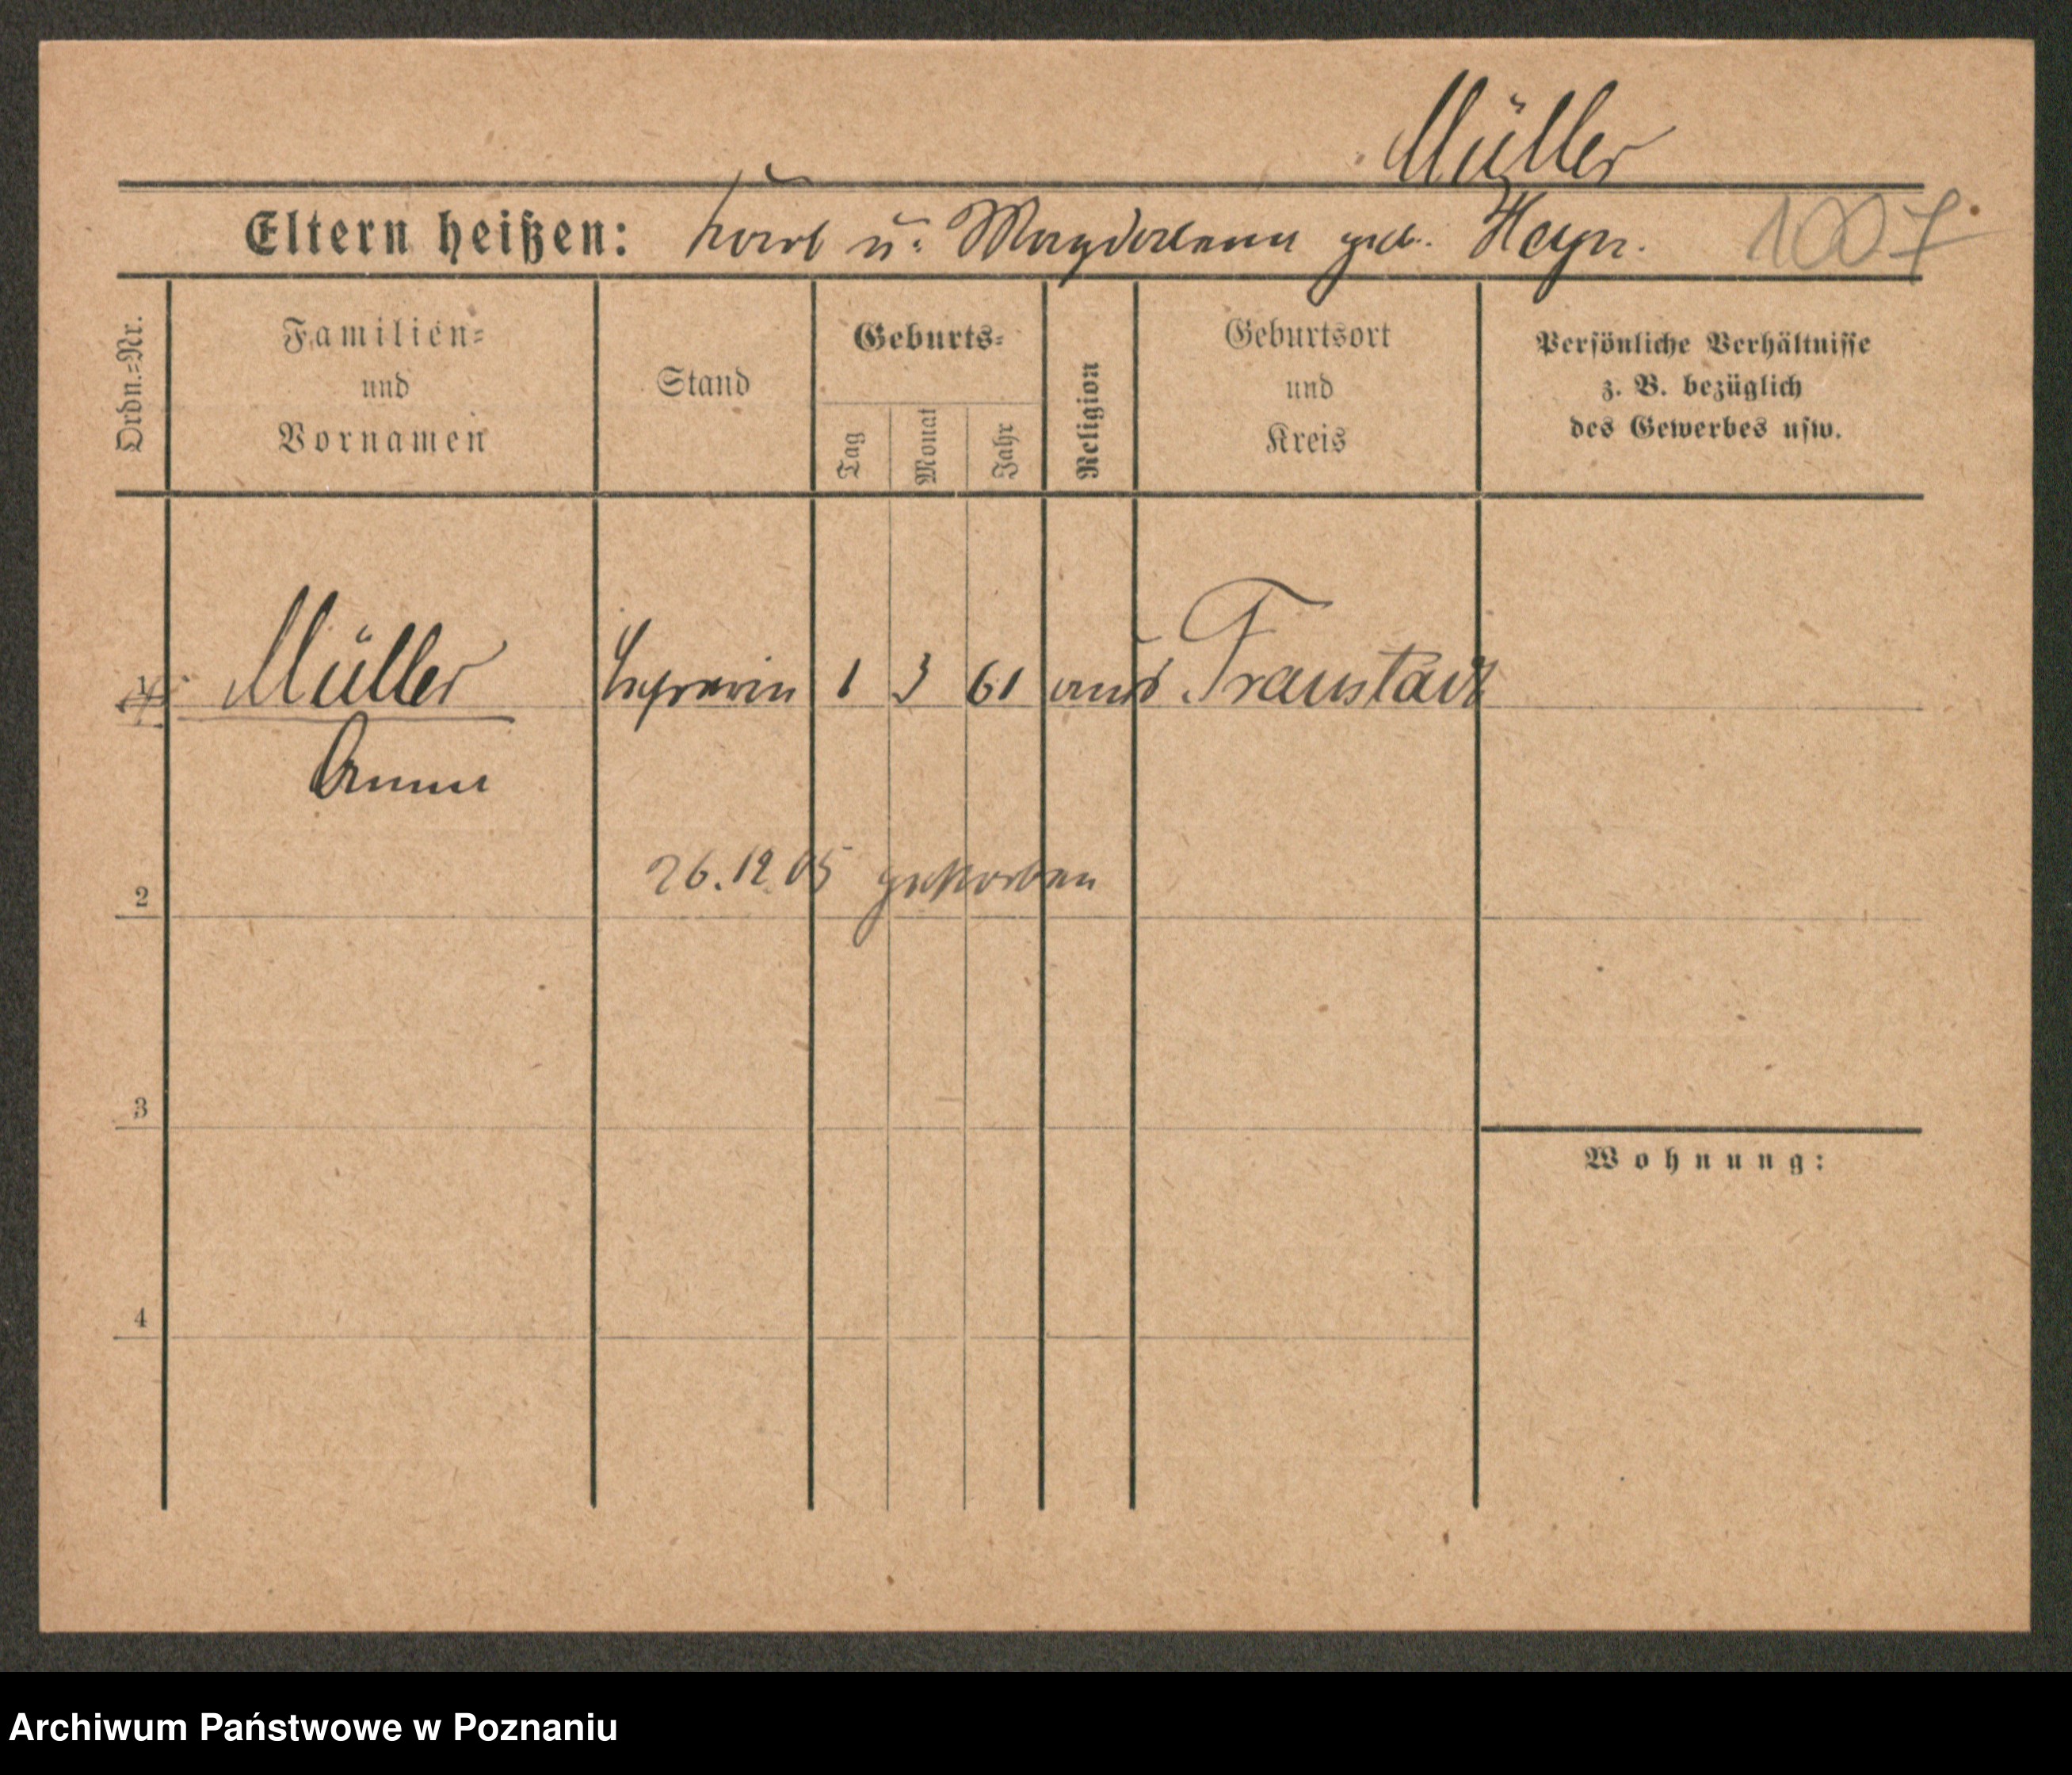 Müller
Eltern heißen: Karl u. Magdalena geb. Heyn. 1007
Ordn.=Nr.
Familien=
und
Vornamen
Stand
Geburts=
Tag
Monat
Jahr
Religion
Geburtsort
und
Kreis
Persönliche Verhältnisse
z. B. bezüglich
des Gewerbes usw.
Müller Lehrerin 1 3 61 Fraustadt
Anna
26.12.05 gestorben
2
3
Wohnung:
4
Archiwum Państwowe w Poznaniu